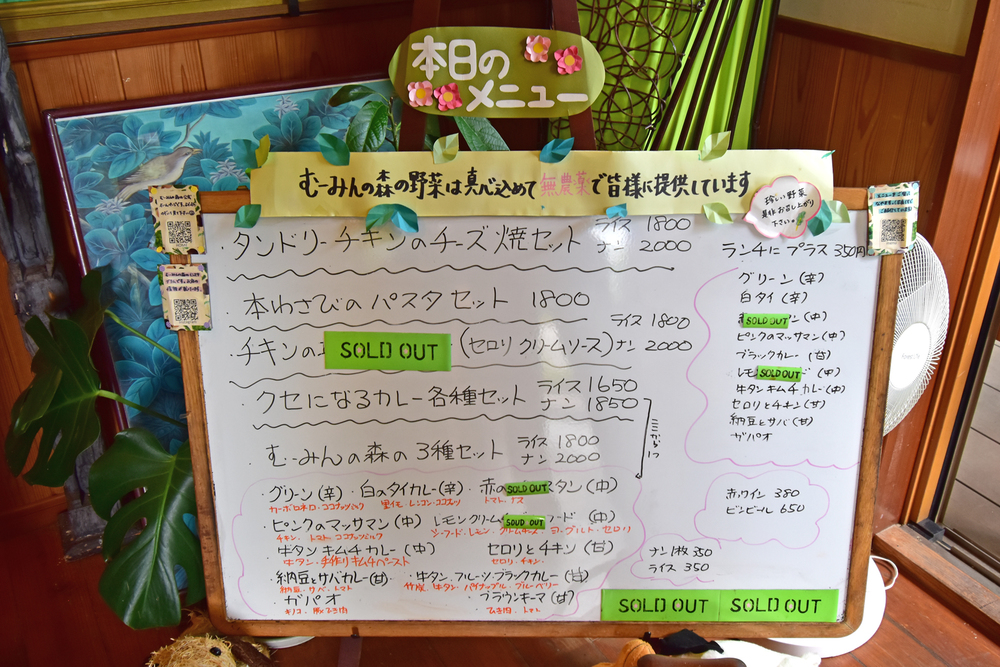 本日の
メニュー
むーみんの森の野菜は真心込めて無農薬で皆様に提供しています
珍しい野菜
下さい
・タンドリーチキンのチーズ焼セット ライス 1800
ナン 2000
・本わさびのパスタセット 1800
・チキンの SOLD OUT (セロリクリームソース) ライス 1800
ナン 2000
・クセになるカレー各種セット ライス 1650
ナン 1850
・むーみんの森の3種セット ライス 1800
ナン 2000
三から1つ
・グリーン(辛) ・白のタイカレー(辛) ・赤の SOLD OUT スタン(中)
カーボロネロ・ココナッツミルク 里イモ レンコン・ココナッツ トマト・ナス
・ピンクのマッサマン(中) レモンクリーム SOLD OUT フード (中)
チキン・トマト・ココナッツミルク シーフード・レモン・クリームチーズ・ヨーグルト・セロリ
・牛タンキムチカレー(中) セロリとチキン(甘)
牛タン・手作りキムチペースト セロリ・チキン
・納豆とサバカレー(甘) ・牛タン、フルーツ・ブラックカレー(甘)
納豆・サバ・トマト 竹炭 牛タン・パイナップル・ブルーベリー
・ガパオ ・ブラウンキーマ(甘)
ひき肉・トマト
ランチにプラス 350円
グリーン(辛)
白タイ(辛)
SOLD OUT ン(中)
ピンクのマッサマン(中)
ブラックカレー(甘)
レモン SOLD OUT (中)
牛タンキムチカレー(中)
セロリとチキン(甘)
納豆とサバ(甘)
ガパオ
赤ワイン 380
ビンビール 650
ナン1枚 350
ライス 350
SOLD OUT SOLD OUT